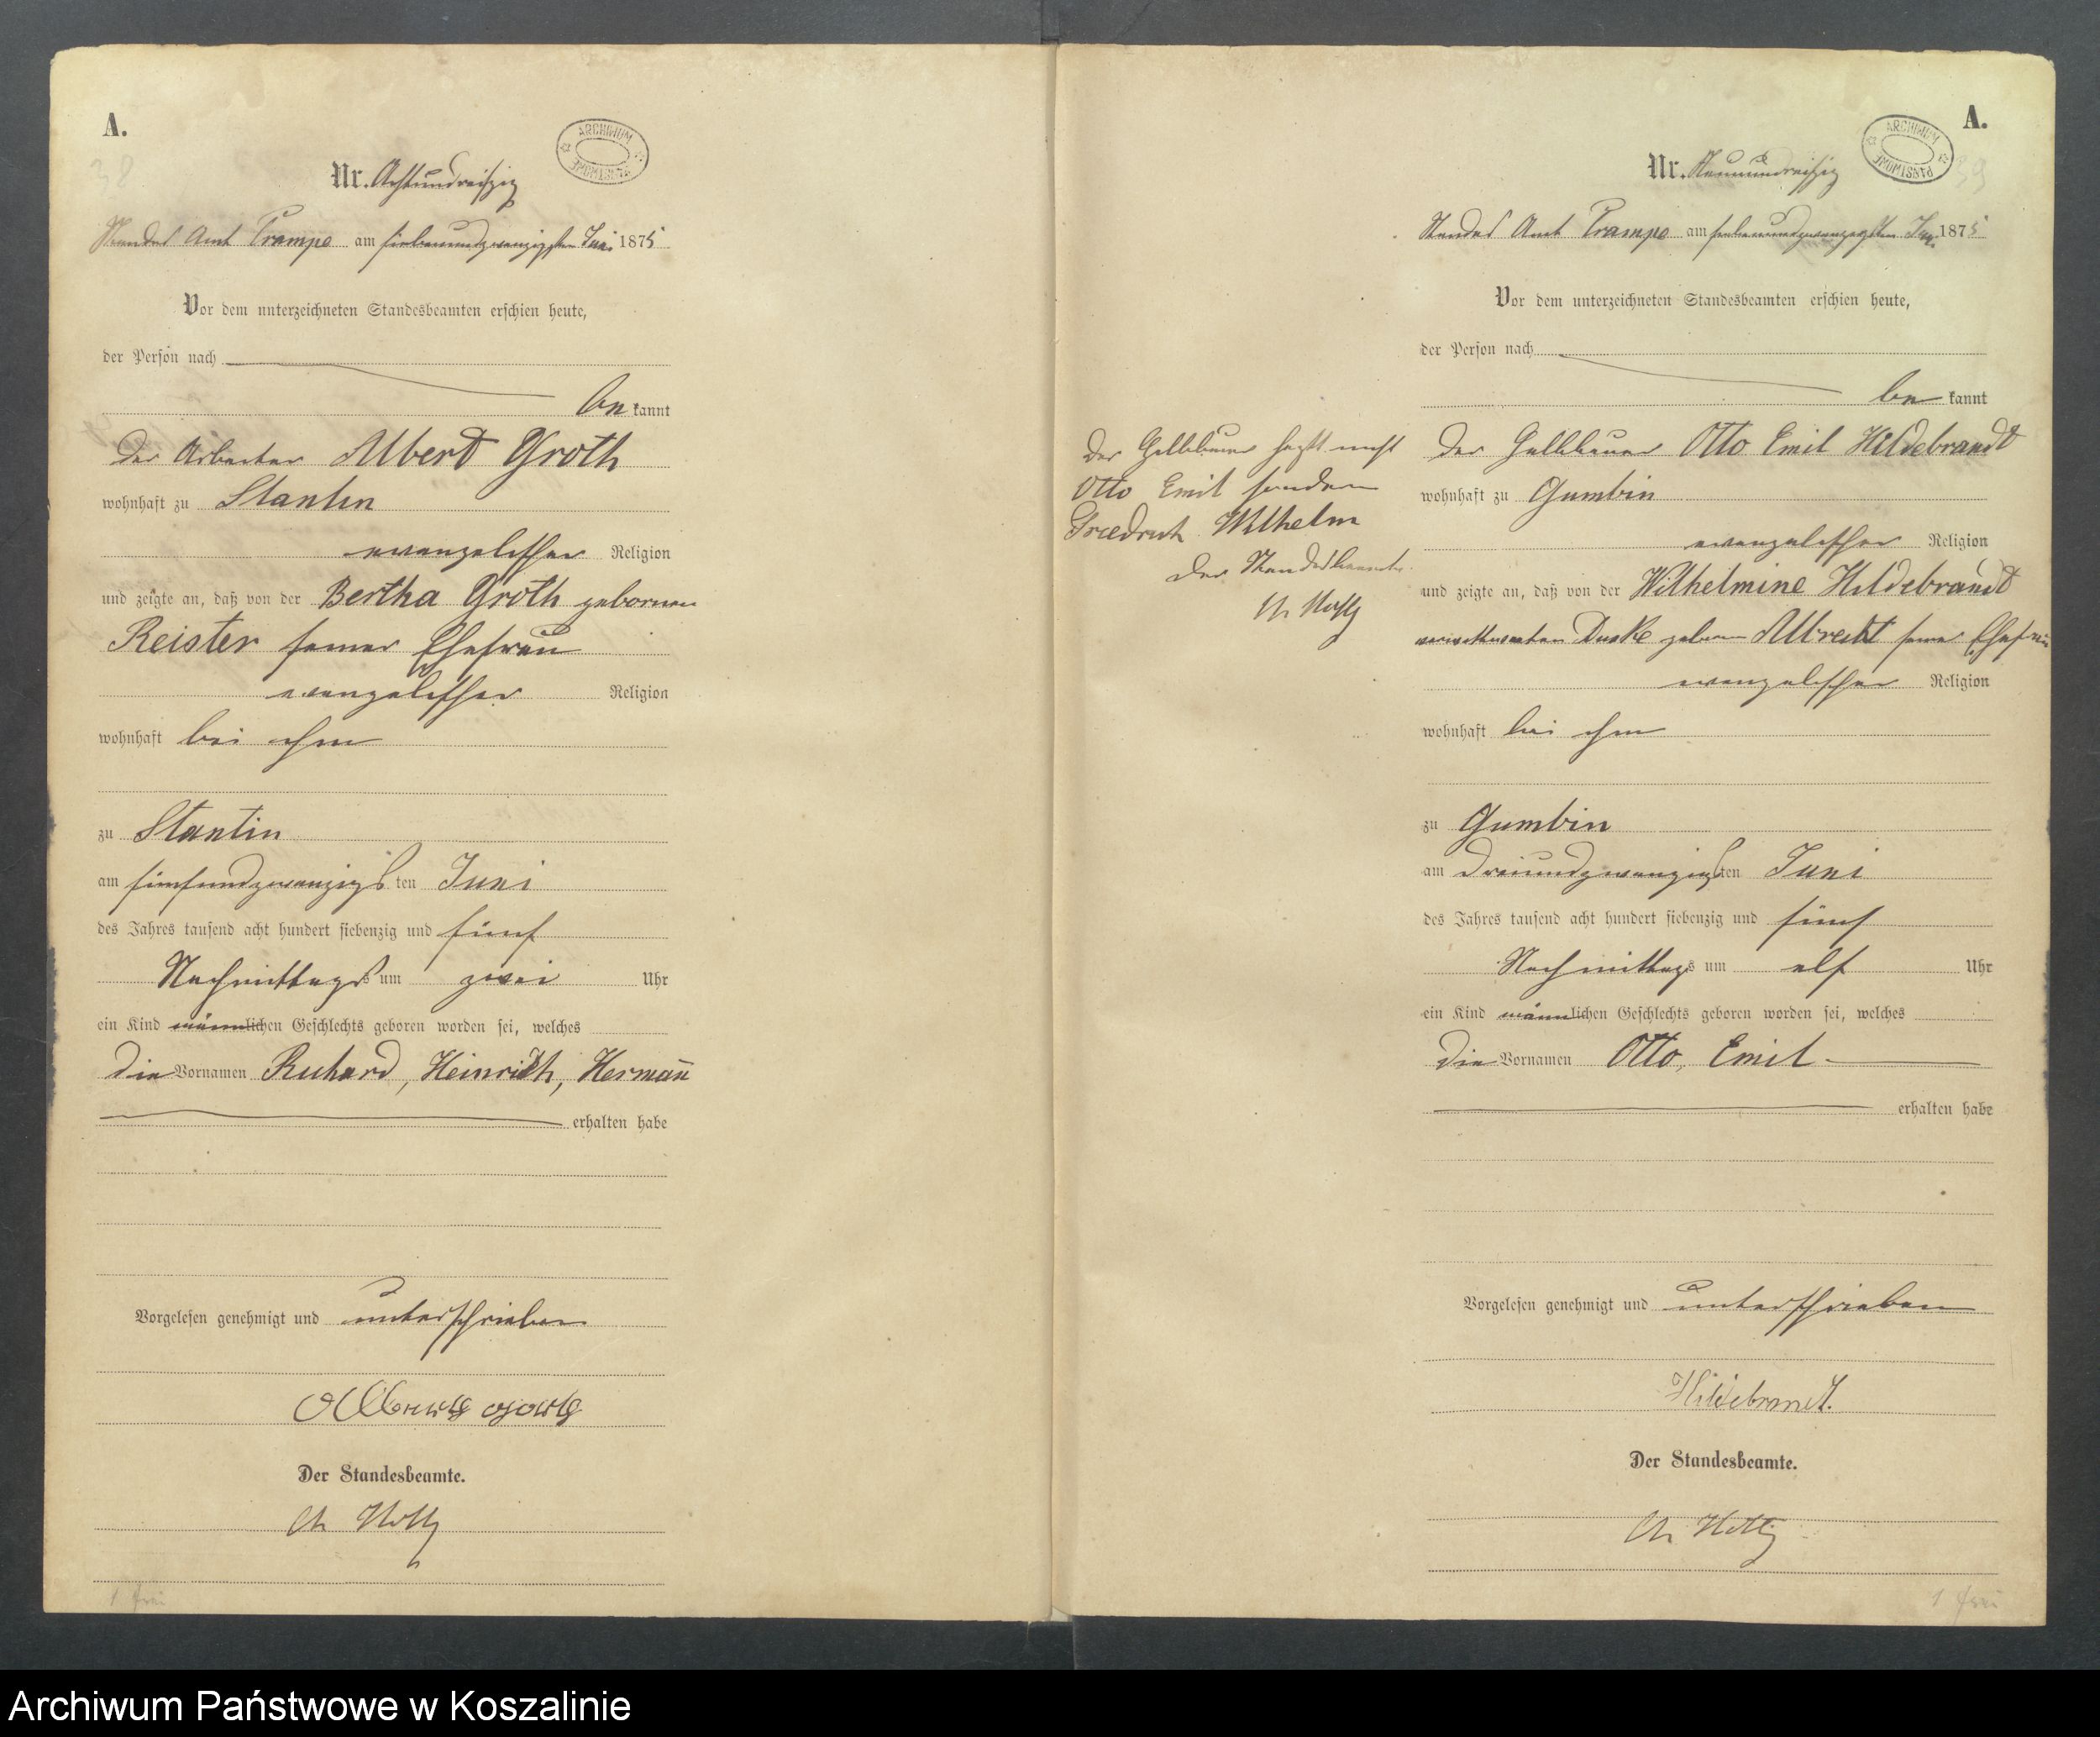 A.
38
Nr. Achtundreißig
ARCHIWUM PAŃSTWOWE
Standes Amt Trampe am siebenundzwanzigsten Juni 1875
Vor dem unterzeichneten Standesbeamten erschien heute,
der Person nach
be kannt
Der Arbeiter Albert Groth
wohnhaft zu Stantin
evangelischer Religion
und zeigte an, daß von der Bertha Groth gebornen
Reister seiner Ehefrau
evangelischer Religion
wohnhaft bei ihm
zu Stantin
am fünfundzwanzigs ten Juni
des Jahres tausend acht hundert siebenzig und fünf
Nachmittags um zwei Uhr
ein Kind männlichen Geschlechts geboren worden sei, welches
die Vornamen Richard, Heinrich, Hermann
erhalten habe
Vorgelesen genehmigt und unterschrieben
Albert
Der Standesbeamte.
1 frei
A.
39
Nr. Neunundreißig
ARCHIWUM PAŃSTWOWE
Standes Amt Trampe am siebenundzwanzigsten Juni 1875
Vor dem unterzeichneten Standesbeamten erschien heute,
der Person nach
be kannt
Der Halbbauer Otto Emil Hildebrandt
wohnhaft zu Gumbin
evangelischer Religion
und zeigte an, daß von der Wilhelmine Hildebrandt
verwittweten Duske geborn Albrecht seiner Ehefrau
evangelischer Religion
wohnhaft bei ihm
zu Gumbin
am dreiundzwanzigs ten Juni
des Jahres tausend acht hundert siebenzig und fünf
Nachmittags um elf Uhr
ein Kind männlichen Geschlechts geboren worden sei, welches
die Vornamen Otto, Emil
erhalten habe
Vorgelesen genehmigt und unterschrieben
Hildebrandt.
Der Standesbeamte.
1 frei
Der Halbbauer heißt nicht
Otto Emil sondern
Friedrich Wilhelm
Der Standesbeamte
Archiwum Państwowe w Koszalinie